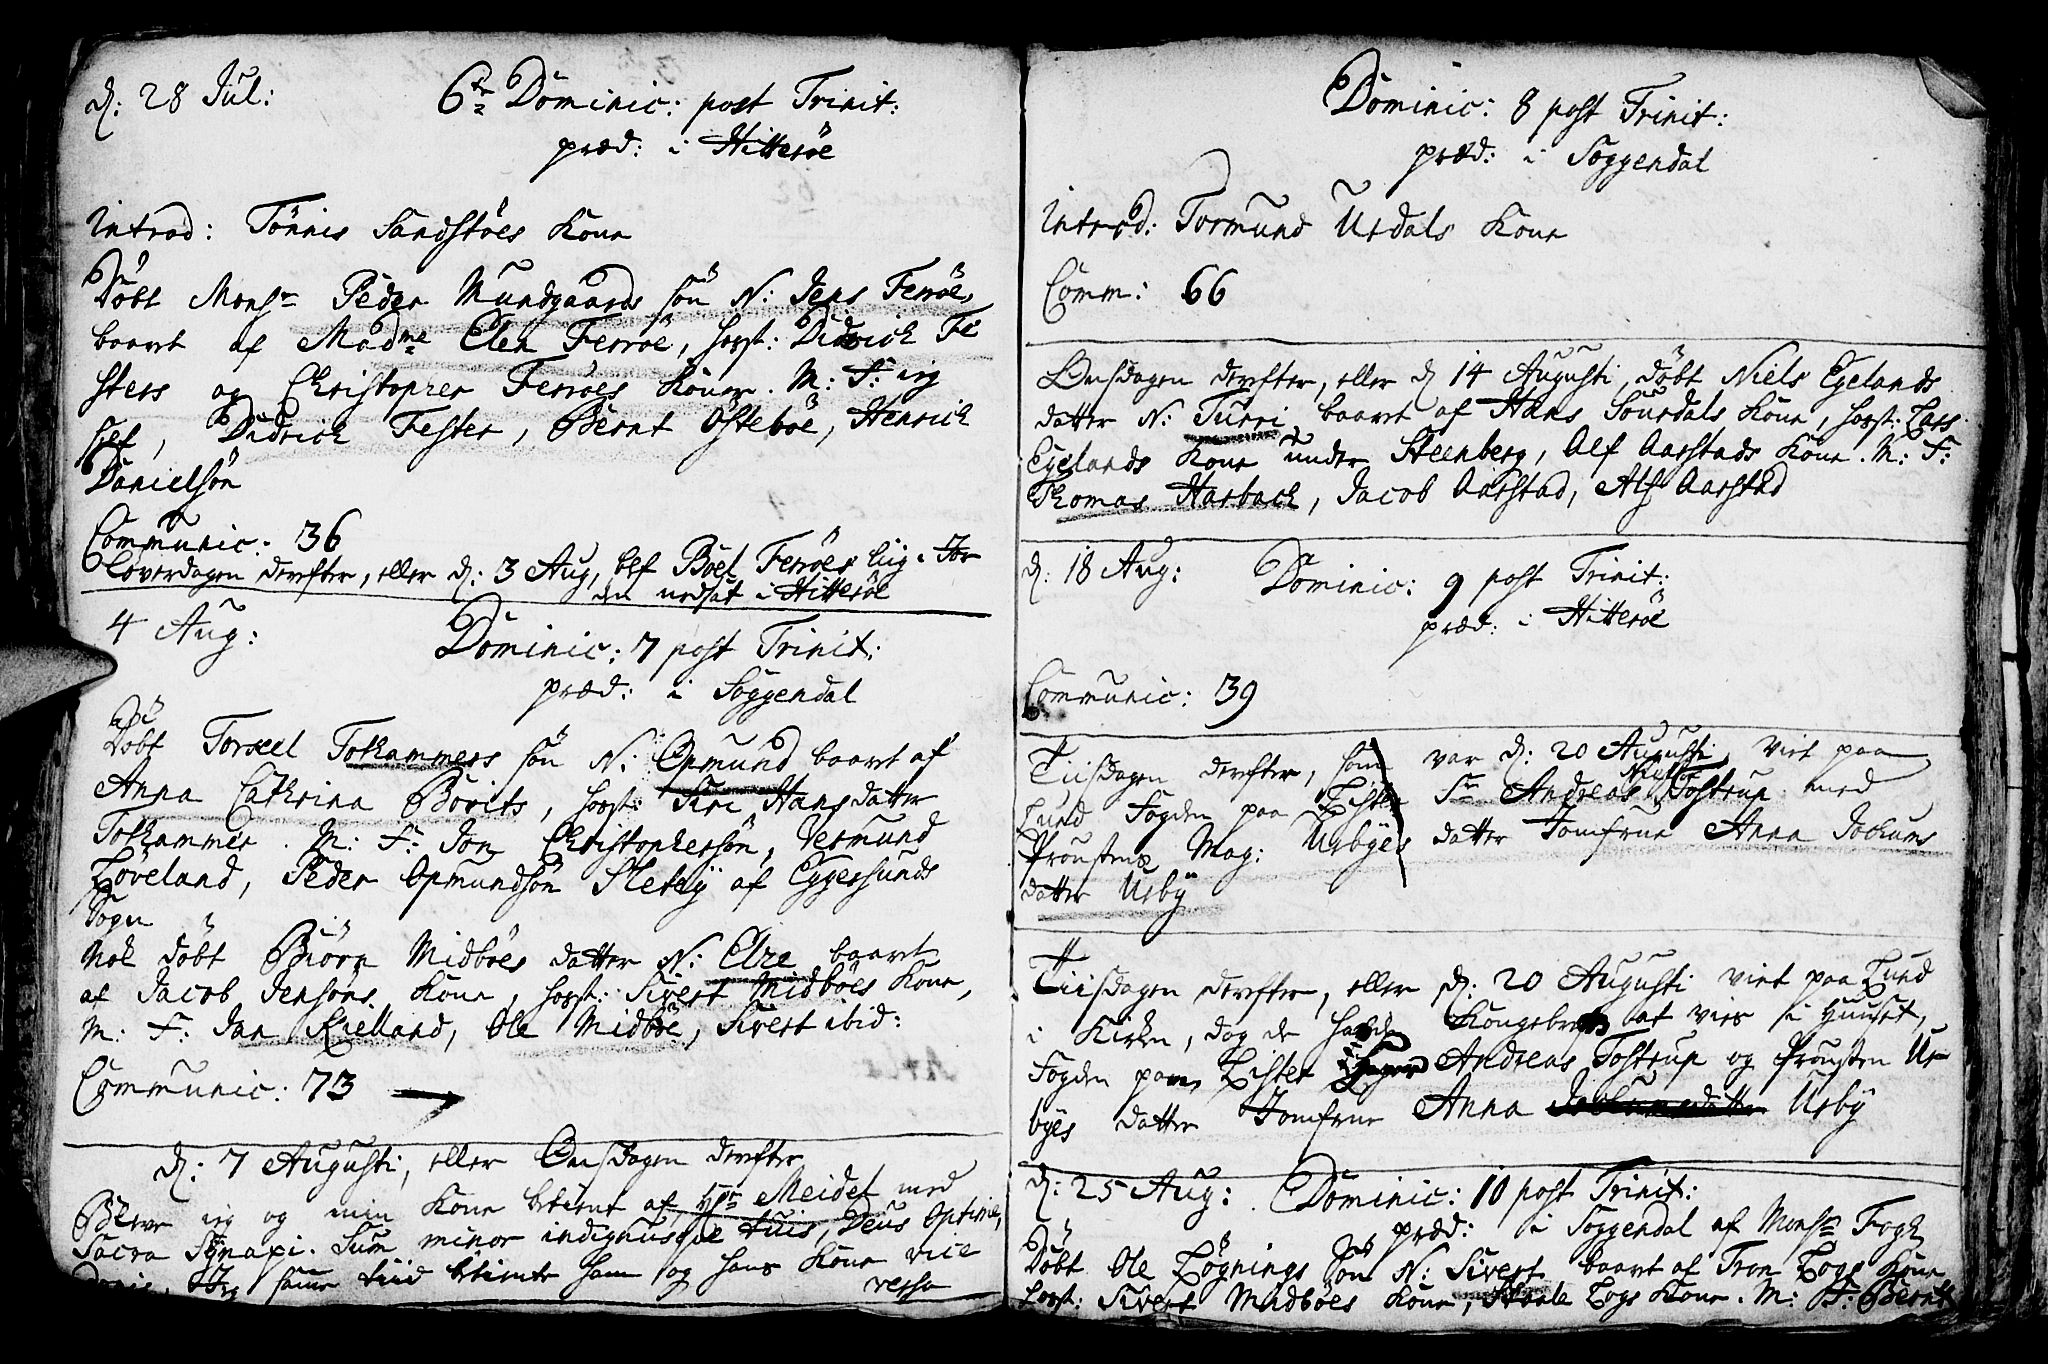 d: 28 Jul:
6te Dominic: post Trinit:
præd: i Hitterøe
Introd: Tönnis Sandstöes Kone
Döbt Monsr Peder Mundgaards sön N: Jens Ferröe,
baaret af Madme Elen Ferröe, host: Didrich Fe
sters og Christopher Ferröes Koner. M: F: ieg
self, Didrich Fester, Bernt Östeböe, Henrich
Danielsön
Communic: 36
Löverdagen derefter, eller d: 3 Aug, blef Böel Ferröes liig i Jor
den nedsat i Hitteröe
4 Aug:
Dominic: 7 post Trinit:
præd: i Soggendal
Döbt Torkel Tokammers sön N: Opmund baaret af
Anna Cathrina Borits, host: Siri Hansdatter
Tokammer. M: F: Jon Christophersön, Vermund
Löveland, Peder Opmundsön Sletebÿ af Eggersunds
Sogn
Nok döbt Biörn Midböes datter N: Elze baaret
af Jacob Jensöns Kone, host: Sivert Midböes Kone,
M: F: Jan Kielland, Ole Midböe, Sivert ibid:
Communic: 73
d: 7 Augusti, eller Onsdagen derefter
Bleve ieg og min Kone betient af Hr Meidel med
Sacra Synaxi. Sum minor indignusque tuis, Deus Optime,
Donis. Jeg samme tiid betiente ham og hans Kone vice
versa
Dominic: 8 post Trinit:
præd: i Soggendal
Introd: Tormund Urdals Kone
Comm: 66
Onsdagen derefter, eller d 14 Augusti, döbt Niels Egelands
datter N: Turri, baaret af Hans Sourdals Kone, host: Lars
Egelands Kone under Steenberg, Alf Aarstads Kone. M: F:
Thomas Harbach, Jacob Aarstad, Alf Aarstad
d: 18 Aug:
Dominic: 9 post Trinit:
præd: i Hitteröe
Communic: 39
Tiisdagen derefter, som var d: 20 Augusti, viet paa
Lund Fogden paa Lister Sr Andreas Tostrup med
Proustens Mag: Urbÿes datter Jomfrue Anna Jochums
datter Urbÿ
Tiisdagen derefter, eller d: 20 Augusti viet paa Lund
i Kirken, dog de hafde Kongebref at vies i Huuset,
Fogden paa Lister Andreas Tostrup og Prousten Ur
byes datter Jomfrue Anna Jochumsdatter Urbÿ
d: 25 Aug: Dominic: 10 post Trinit:
præd: i Soggendal af Monsr Fogh
Döbt Ole Lögnings sön N: Sivert baaret af Tron Logs Kone
host: Sivert Midböes Kone, Staale Logs Kone. M: F: Bernt